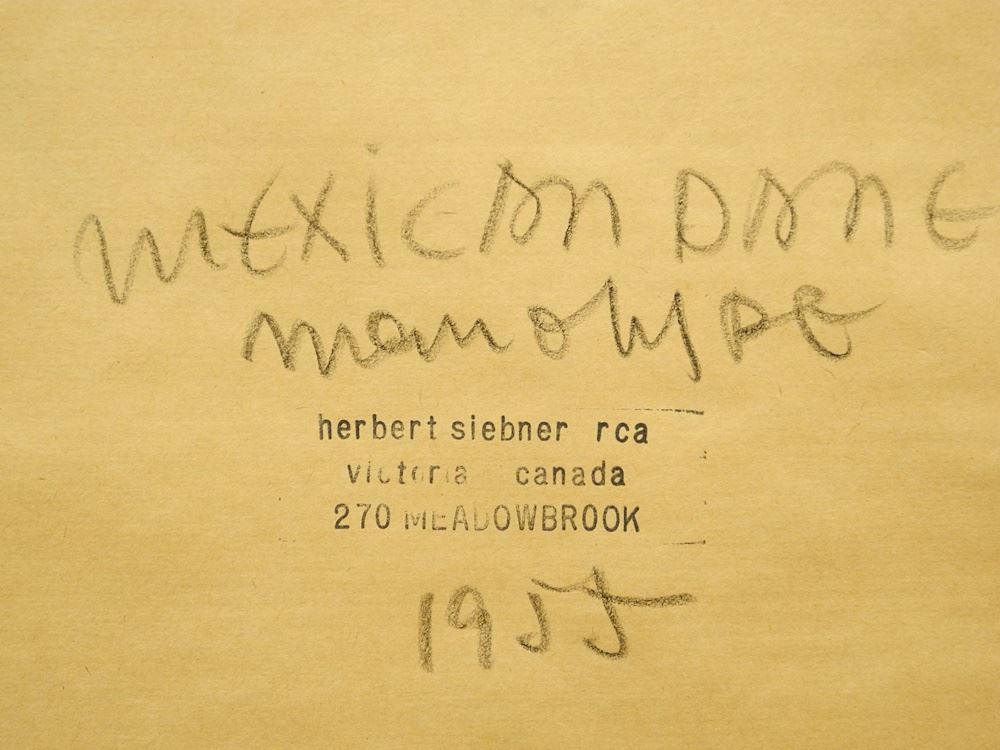 MEXICAN DANE
monotype
herbert siebner rca
victoria canada
270 MEADOWBROOK
1955